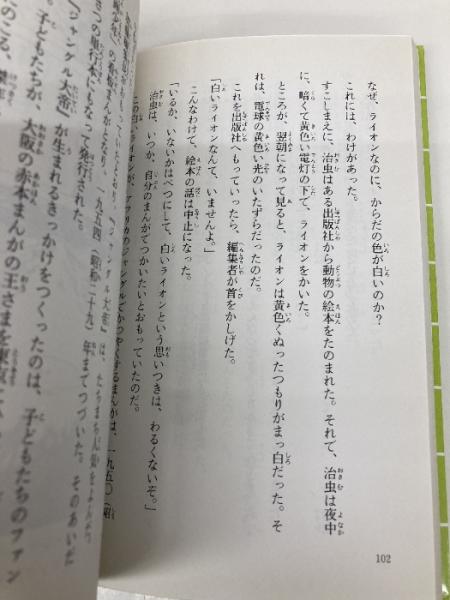 なぜ、ライオンなのに、からだの色が白いのか?
これには、わけがあった。
すこしまえに、治虫はある出版社から動物の絵本をたのまれた。それで、治虫は夜中
に、暗くて黄色い電灯の下で、ライオンをかいた。
ところが、翌朝になって見ると、ライオンは黄色くぬったつもりがまっ白だった。そ
れは、電球の黄色い光のいたずらだったのだ。
これを出版社へもっていったら、編集者が首をかしげた。
「白いライオンなんて、いませんよ。」
こんなわけで、絵本の話は中止になった。
「いるか、いないかはべつにして、白いライオンという思いつきは、わるくないぞ。」
治虫は、いつか、自分のまんがでつかいたいとおもっていたのだ。
この白いライオンが、アフリカのジャングルでかつやくするまんがは、一九五〇(昭
『ジャングル大帝』は、たちまち人気を
まんがとなり、一九五四(昭和二十九)年までつづいた。そのあいだ
さつの単行本にもなって発行された。
『ジャングル大帝』が生まれるきっかけをつくったのは、子どもたちのファン
子どもたちが、大阪の赤本まんがの王さまを東京
のころ、
102